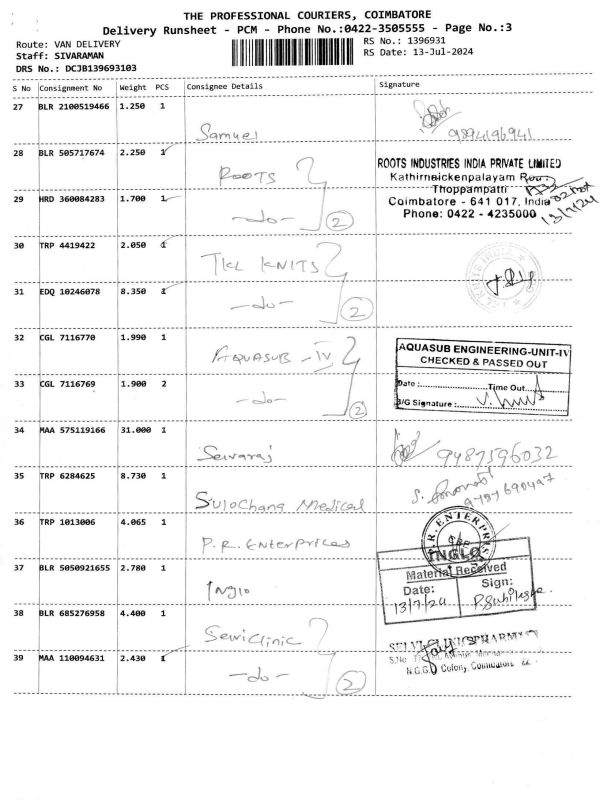 THE PROFESSIONAL COURIERS, COIMBATORE
Delivery Runsheet - PCM - Phone No.:0422-3505555 - Page No.:3
Route: VAN DELIVERY RS No.: 1396931
Staff: SIVARAMAN RS Date: 13-Jul-2024
DRS No.: DCJB139693103
S No Consignment No Weight PCS Consignee Details Signature
27 BLR 2100519466 1.250 1
Samuel 9894196941
28 BLR 505717674 2.250 1
ROOTS
ROOTS INDUSTRIES INDIA PRIVATE LIMITED
Kathirnaickenpalayam Road
Thoppampatti
29 HRD 360084283 1.700 1
Coimbatore - 641 017, India
Phone: 0422 - 4235000 13/7/24
-do- 2
30 TRP 4419422 2.050 1
TKL KNITS
31 EDQ 10246078 8.350 1
-do- 2
32 CGL 7116770 1.990 1
AQUASUB - IV
AQUASUB ENGINEERING-UNIT-IV
CHECKED & PASSED OUT
33 CGL 7116769 1.900 2
Date : Time Out
S/G Signature :
-do- 2
34 MAA 575119166 31.000 1
Selvaraj 9487596032
35 TRP 6284625 8.730 1
Sulochana Medical 9787690497
36 TRP 1013006 4.065 1
P.R. Enterprices
P.R. ENTERPRISES
37 BLR 5050921655 2.780 1
Inglo
INGLO
Material Received
Date: Sign:
13/7/24
38 BLR 685276958 4.400 1
Selviclinic
SELVI CLINIC PHARMACY
39 MAA 110094631 2.430 1
N.G.G.O Colony, Coimbatore
-do- 2